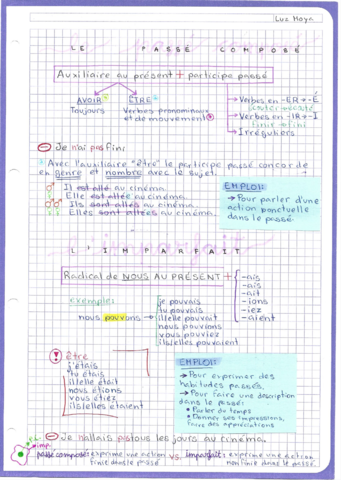 Luz Moya
LE PASSÉ COMPOSÉ
Auxiliaire au présent + participe passé
AVOIR ÊTRE
Toujours Verbes pronominaux et de mouvement
Verbes en -ER → -É
Verbes en -IR → -I
finir → fini
Irréguliers
Je n'ai pas fini
Avec l'auxiliaire "être" le participe passé concorde
en genre et nombre avec le sujet.
Il est allé au cinéma.
Elle est allée au cinéma.
Ils sont allés au cinéma.
Elles sont allées au cinéma.
EMPLOI:
→ Pour parler d'une
action ponctuelle
dans le passé.
L'IMPARFAIT
Radical de NOUS AU PRÉSENT +
-ais
-ais
-ait
-ions
-iez
-aient
exemple:
nous pouvons →
je pouvais
tu pouvais
il/elle pouvait
nous pouvions
vous pouviez
ils/elles pouvaient
être
j'étais
tu étais
il/elle était
nous étions
vous étiez
ils/elles étaient
EMPLOI:
→ Pour exprimer des
habitudes passées.
→ Pour faire une description
dans le passé:
Parler du temps
Donner ses impressions,
faire des appréciations
Je n'allais pas tous les jours au cinéma.
passé composé: exprime une action
finie dans le passé
VS.
imparfait: exprime une action
non finie dans le passé